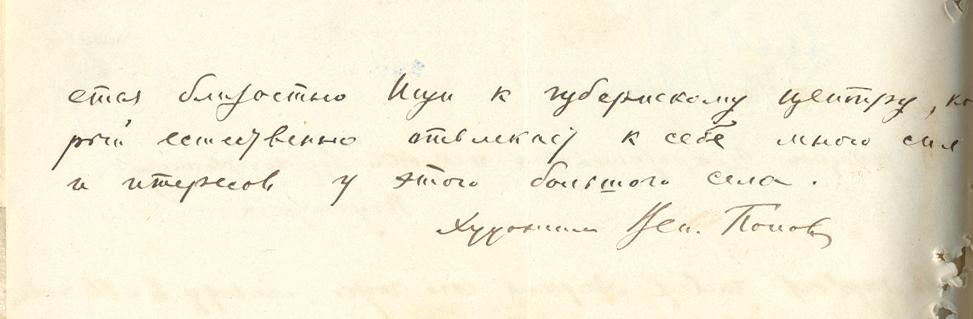 ется близостью Ижи к губернскому центру, ко
рый естественно отвлекает к себе много сил
и итересов у этого большого села.
Художник Вен. Попов